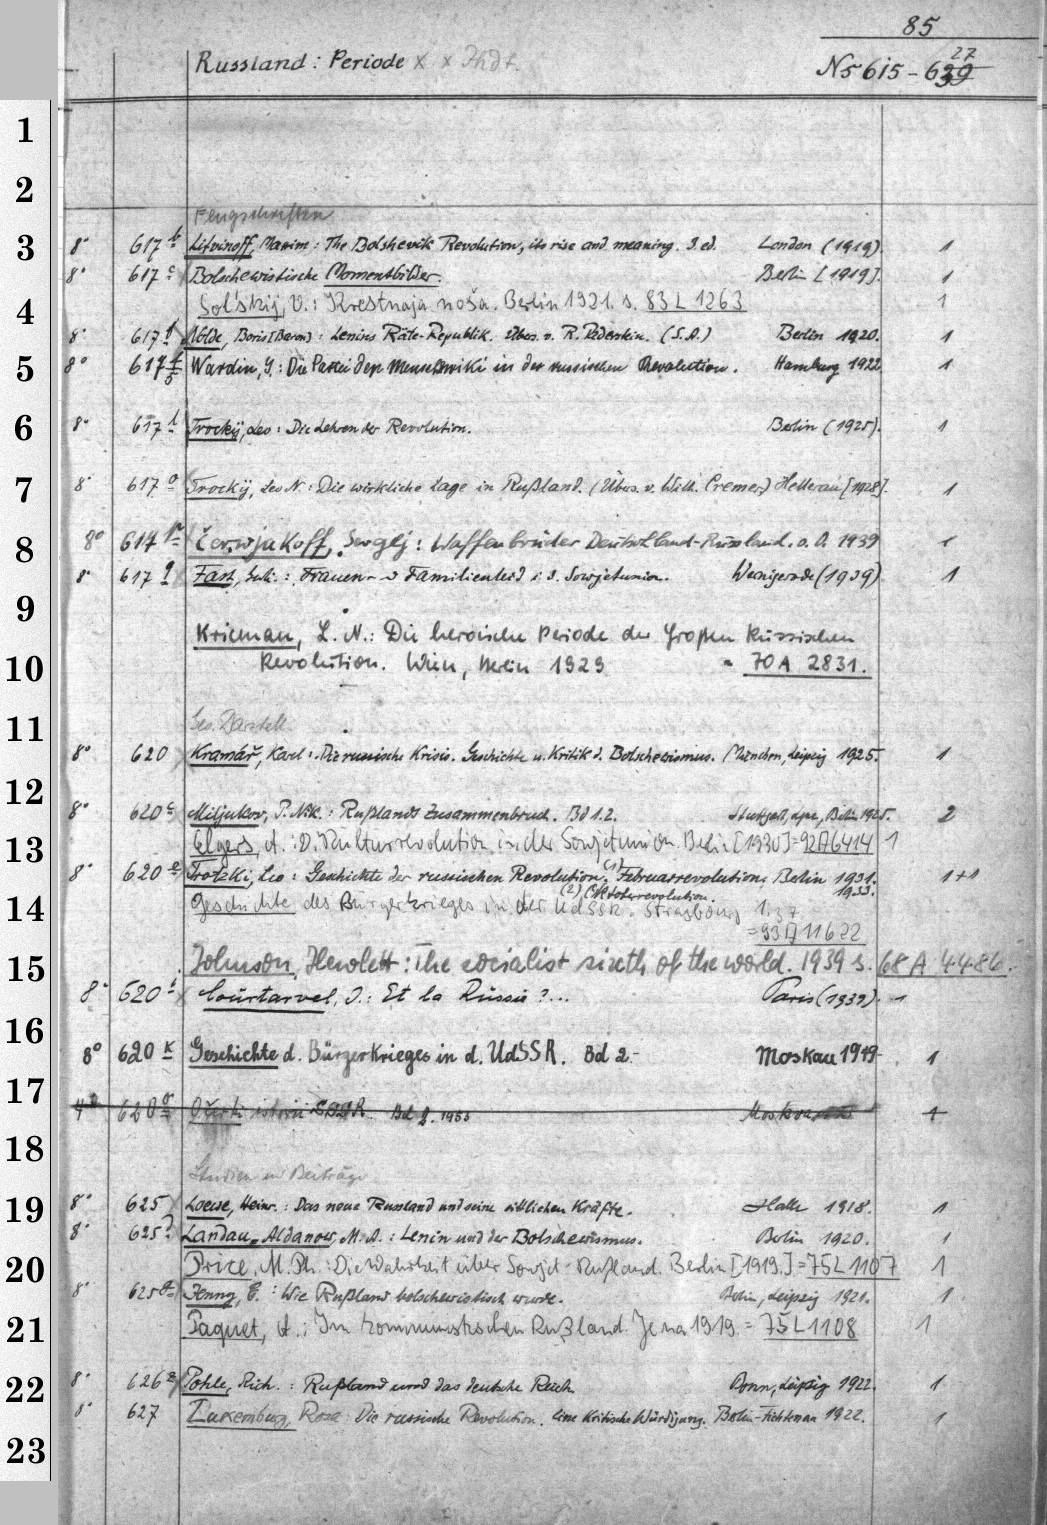 85
Russland : Periode X
N5 615 - 639 27
1
2
Flugschriften
3 8° 617 b Litvinoff, Maxim : The Bolshevik Revolution, its rise and meaning. 3. ed. London (1919). 1
8° 617 c Bolschewistische Momentbilder. Berlin [1919]. 1
4 Sol'skij, V.: Krestnaja noša. Berlin 1921. s. 83 L 1263 1
8° 617 f Nolde, Boris [Baron] : Lenins Räte-Republik. Übers. v. R. (S.A.) Berlin 1920. 1
5 8° 617 Wardin, J.: Die Partei der Menschewiki in der russischen Revolution. Hamburg 1922 1
6 8° 617 l Trockij, Leo : Die Lehren der Revolution. Berlin (1925). 1
7 8° 617 o Trockij, Leo N. : Die wirkliche Lage in Rußland. (Übers. v. Wilh. Cremer.) Hellerau [1928]. 1
8 8° 617 p Čerwjakoff, Sergej : Waffenbrüder Deutschland-Russland. o. O. 1939 1
8° 617 q Fast, : Frauen- u Familienleid i. d. Sowjetunion. Wernigerode (1939) 1
9
Kricman, L. N.: Die heroische Periode der Großen Russischen
10 Revolution. Wien, Berlin 1929 = 70 A 2831.
11 Ges. Darstell.
8° 620 Kramář, Karel : Die russische Krisis. Geschichte u. Kritik d. Bolschewismus. (München, Leipzig 1925. 1
12
8° 620 c Miljukov, P. Nik. : Rußlands Zusammenbruch. Bd 1.2. Stuttgart, Lpz., Berlin 1925. 2
13 Elgers, A. : D. Kulturrevolution in der Sowjetunion. Berlin [1930] = 92 A 6414 1
8° 620 e Trotzki, Leo : Geschichte der russischen Revolution. (1) Februarrevolution. Berlin 1931. 1+1
(2) Oktoberrevolution. 1933.
14 Geschichte des Bürgerkrieges in der UdSSR. Strasbourg 1. 37
= 93 A 11622
15 Johnson, Hewlett : The socialist sixth of the world. 1939 s. 68 A 4486.
8° 620 i Courtarvel, J. : Et la Russie ?... Paris (1939). 1
16
8° 620 K Geschichte d. Bürgerkrieges in d. UdSSR. Bd 2.- Moskau 1949- 1
17 4° 620 o Očerki istorii SSSR. Bd 2. 1953 Moskva 1
18
Studien und Beiträge
19 8° 625 Loewe, Heinr. : Das neue Russland und seine sittlichen Kräfte. Halle 1918. 1
8° 625 Landau-Aldanow, M. A. : Lenin und der Bolschewismus. Berlin 1920. 1
20 Price, M. Ph. : Die Wahrheit über Sowjet-Rußland. Berlin [1919.] = 75 L 1107 1
8° 625 d Jenny, E. : Wie Rußland bolschewistisch wurde. Berlin, Leipzig 1921. 1
21 Paquet, A. : Im kommunistischen Rußland. Jena 1919. = 75 L 1108 1
22 8° 626 a Pohle, Rich. : Rußland und das deutsche Reich. Bonn, Leipzig 1922. 1
8° 627 Luxemburg, Rosa : Die russische Revolution. Eine kritische Würdigung. Berlin-Fichtenau 1922. 1
23